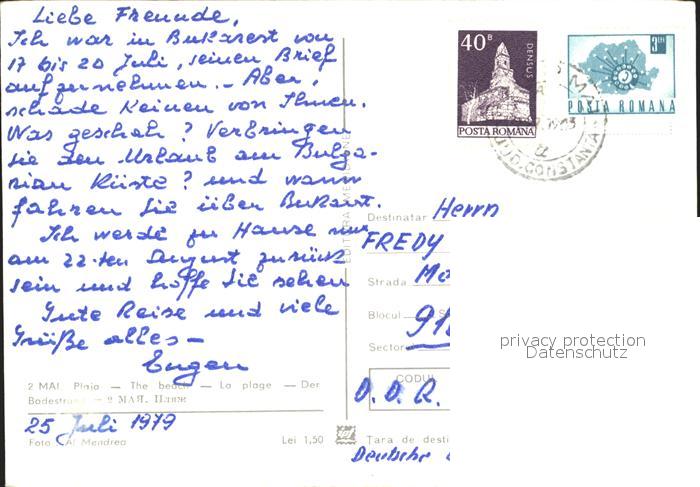 Liebe Freunde,
Ich war in Bukarest von
17 bis 20 Juli, seinen Brief
aufzunehmen. - Aber,
schade keinen von Ihnen.
Was geschah? Verbringen
sie den Urlaub am Bulga-
rian Küste? und wann
fahren Sie über Bukarest.
Ich werde zu Hause nur
am 22-ten August zurück
sein und hoffe Sie sehen
Gute Reise und viele
Grüße alles -
Eugen
2 MAI Plaja — The beach — La plage — Der
Badestrand — 2 МАЯ. Пляж
25 Juli 1979
Foto: Al Mendrea
Lei 1,50
40 B
DENSUS
POSTA ROMÂNA
3 LEI
POSTA ROMANA
JUD. CONSTANTA
Destinatar Herrn
FREDY
Strada Mo
Blocul
91
Sectorul
CODUL
D.D.R.
Țara de desti
Deutsche
privacy protection
Datenschutz